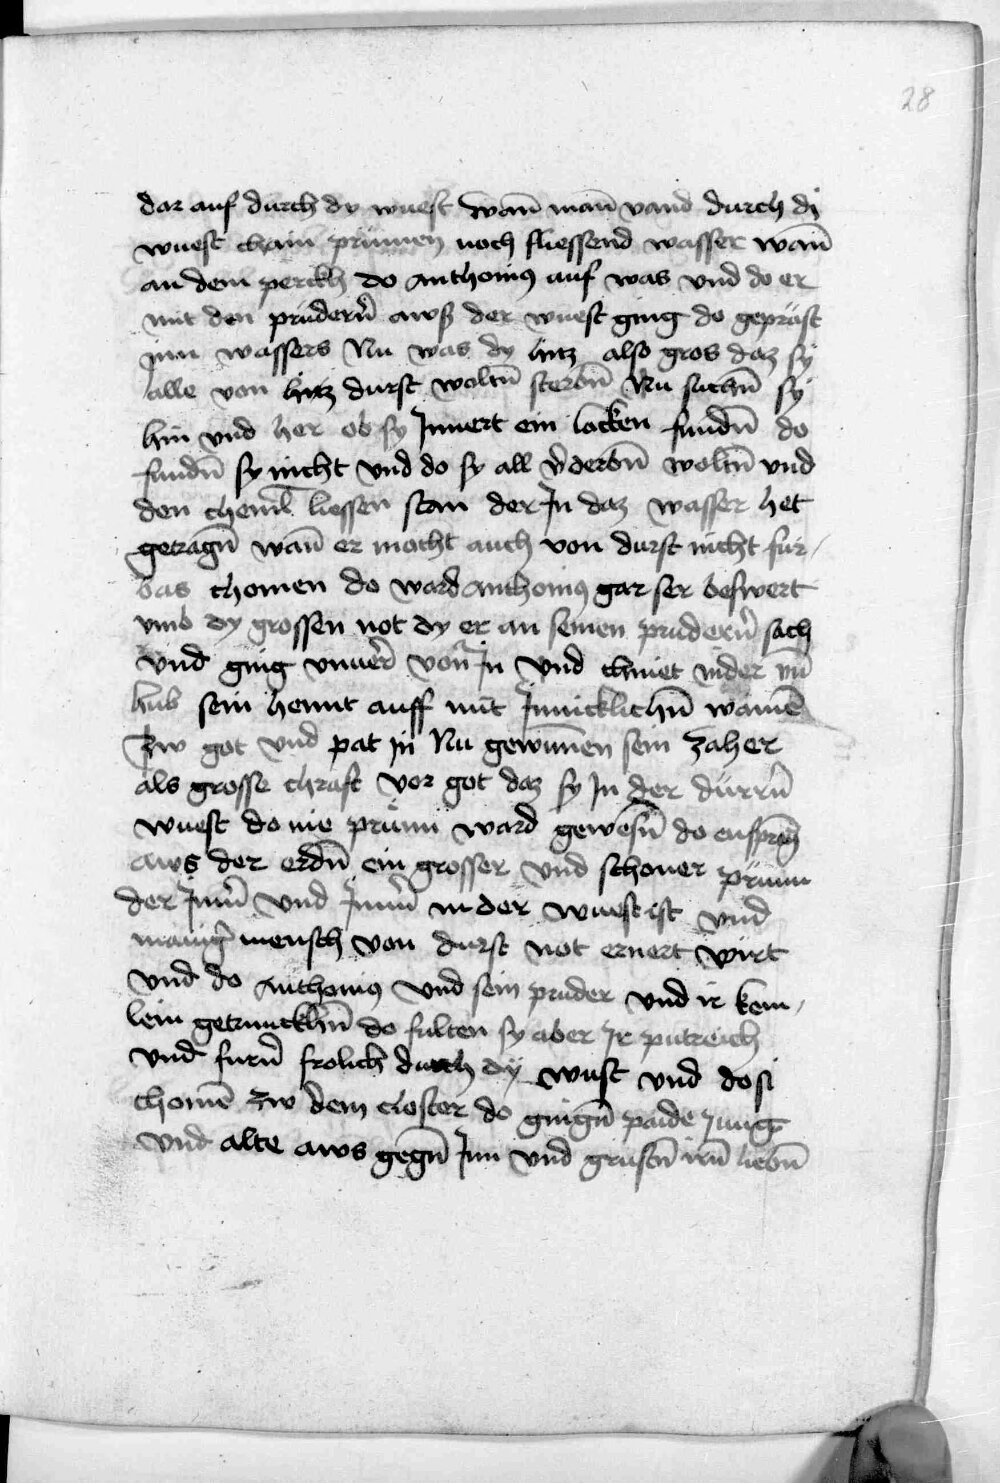 28
dar auf durch dy wuest wan̄ man̄ vand durch dy
wuest chain prünnen noch fliessend wasser wan̄
an dem perckh do anthonius auf was vnd do er
mit den prüdern̄ aws der wuest ging do gepräst
jnn wassers Nu was dy hitz also gros daz sy
alle von hitz durst woltn̄ sterbn̄ Nu suchtn̄ sy
hin vnd her ob sy Jnnert ein lacken fundn̄ do
fundn̄ sy nicht vnd do sy all v̄derbn̄ woltn̄ vnd
den cheml̄ liessen stan der Jn daz wasser het
getragn̄ wan̄ er mocht auch von durst nicht fur-
bas chomen do ward anthonius gar ser beswert
vmb dy grossen not dy er an seinen prudern̄ sach
vnd ging vnuer̄ von̄ Jn vnd chniet nider vn̄
hub sein hennt auff mit Jnnicklichn̄ wainē
zw got vnd pat jn Nu gewunnen sein zaher
als grosse chraft vor got daz sy Jn der dürrn̄
wuest do nie prünn ward gewesn̄ do ensprang
aws der erdn̄ ein grosser vnd schoner prünn
der Jmm̄ vnd Jmm̄ in der wuest ist vnd
maniḡ mensch von durst not ernert wirt
vnd do anthonius vnd sein pruder vnd ir kem-
lein getrunckhn̄ do fulten sy aber Jr putreich
vnd furn̄ frolich durch dy wust vnd do si
chomē zw dem closter do gingn̄ paide Jung
vnd alte aws gegn̄ Jnn vnd grustn̄ irn̄ liebn̄